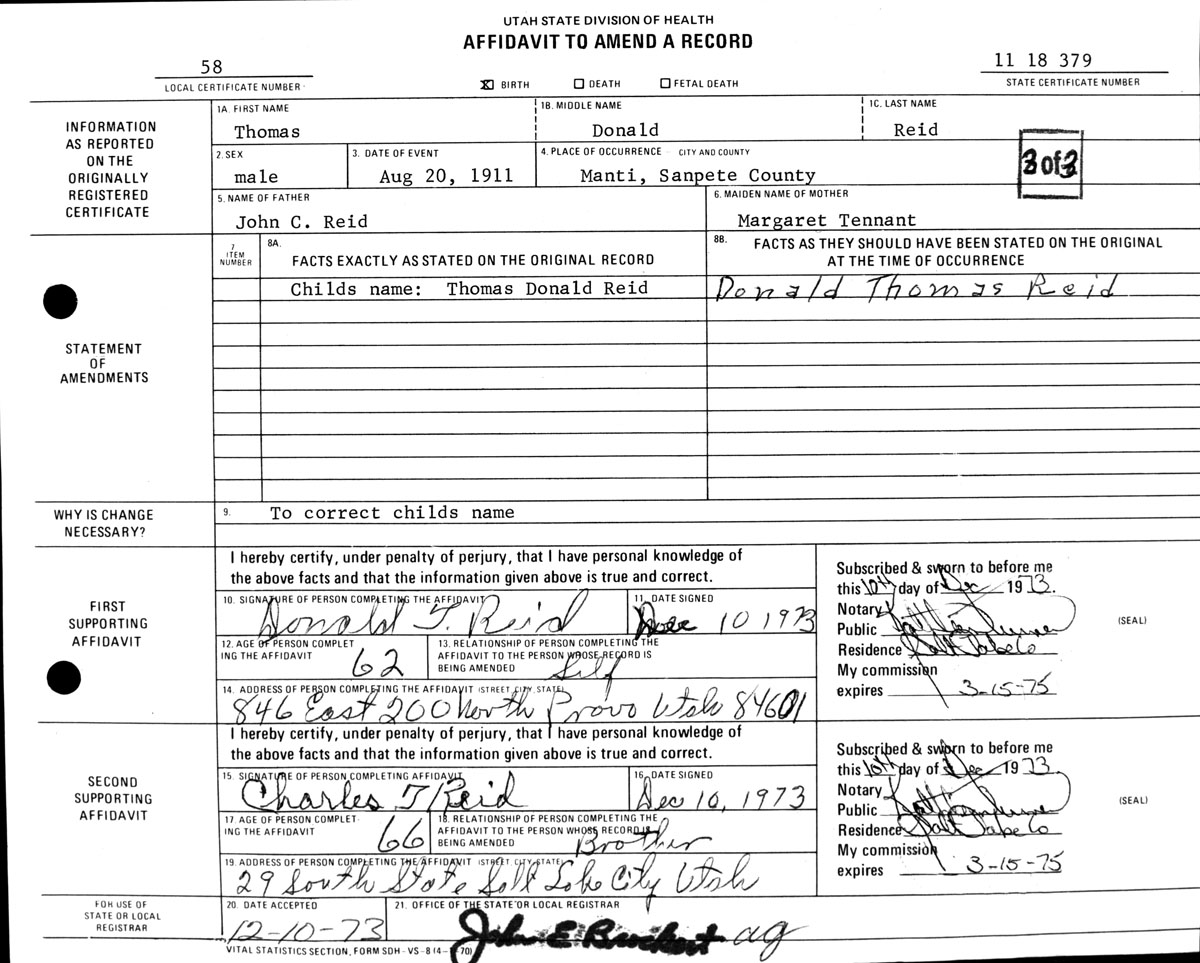 UTAH STATE DIVISION OF HEALTH
AFFIDAVIT TO AMEND A RECORD
58
LOCAL CERTIFICATE NUMBER
X BIRTH DEATH FETAL DEATH
11 18 379
STATE CERTIFICATE NUMBER
INFORMATION
AS REPORTED
ON THE
ORIGINALLY
REGISTERED
CERTIFICATE
1A. FIRST NAME
Thomas
1B. MIDDLE NAME
Donald
1C. LAST NAME
Reid
2. SEX
male
3. DATE OF EVENT
Aug 20, 1911
4. PLACE OF OCCURRENCE CITY AND COUNTY
Manti, Sanpete County
3 of 3
5. NAME OF FATHER
John C. Reid
6. MAIDEN NAME OF MOTHER
Margaret Tennant
STATEMENT
OF
AMENDMENTS
7
ITEM
NUMBER
8A.
FACTS EXACTLY AS STATED ON THE ORIGINAL RECORD
8B. FACTS AS THEY SHOULD HAVE BEEN STATED ON THE ORIGINAL
AT THE TIME OF OCCURRENCE
Childs name: Thomas Donald Reid
Donald Thomas Reid
WHY IS CHANGE
NECESSARY?
9. To correct childs name
FIRST
SUPPORTING
AFFIDAVIT
I hereby certify, under penalty of perjury, that I have personal knowledge of
the above facts and that the information given above is true and correct.
10. SIGNATURE OF PERSON COMPLETING THE AFFIDAVIT
Donald T. Reid
11. DATE SIGNED
Dec 10 1973
12. AGE OF PERSON COMPLET
ING THE AFFIDAVIT
62
13. RELATIONSHIP OF PERSON COMPLETING THE
AFFIDAVIT TO THE PERSON WHOSE RECORD IS
BEING AMENDED
Self
14. ADDRESS OF PERSON COMPLETING THE AFFIDAVIT (STREET, CITY, STATE)
846 East 200 North Provo Utah 84601
Subscribed & sworn to before me
this 10th day of Dec 1973.
Notary
Public
Residence Salt Lake Co
My commission
expires 3-15-75
(SEAL)
SECOND
SUPPORTING
AFFIDAVIT
I hereby certify, under penalty of perjury, that I have personal knowledge of
the above facts and that the information given above is true and correct.
15. SIGNATURE OF PERSON COMPLETING AFFIDAVIT
Charles T Reid
16. DATE SIGNED
Dec 10, 1973
17. AGE OF PERSON COMPLET-
ING THE AFFIDAVIT
66
18. RELATIONSHIP OF PERSON COMPLETING THE
AFFIDAVIT TO THE PERSON WHOSE RECORD IS
BEING AMENDED
Brother
19. ADDRESS OF PERSON COMPLETING THE AFFIDAVIT (STREET, CITY, STATE)
29 South State Salt Lake City Utah
Subscribed & sworn to before me
this 10th day of Dec 1973.
Notary
Public
Residence Salt Lake Co
My commission
expires 3-15-75
(SEAL)
FOR USE OF
STATE OR LOCAL
REGISTRAR
20. DATE ACCEPTED
12-10-73
21. OFFICE OF THE STATE OR LOCAL REGISTRAR
John E Brockert ag
VITAL STATISTICS SECTION, FORM SDH-VS-8 (4- -70)